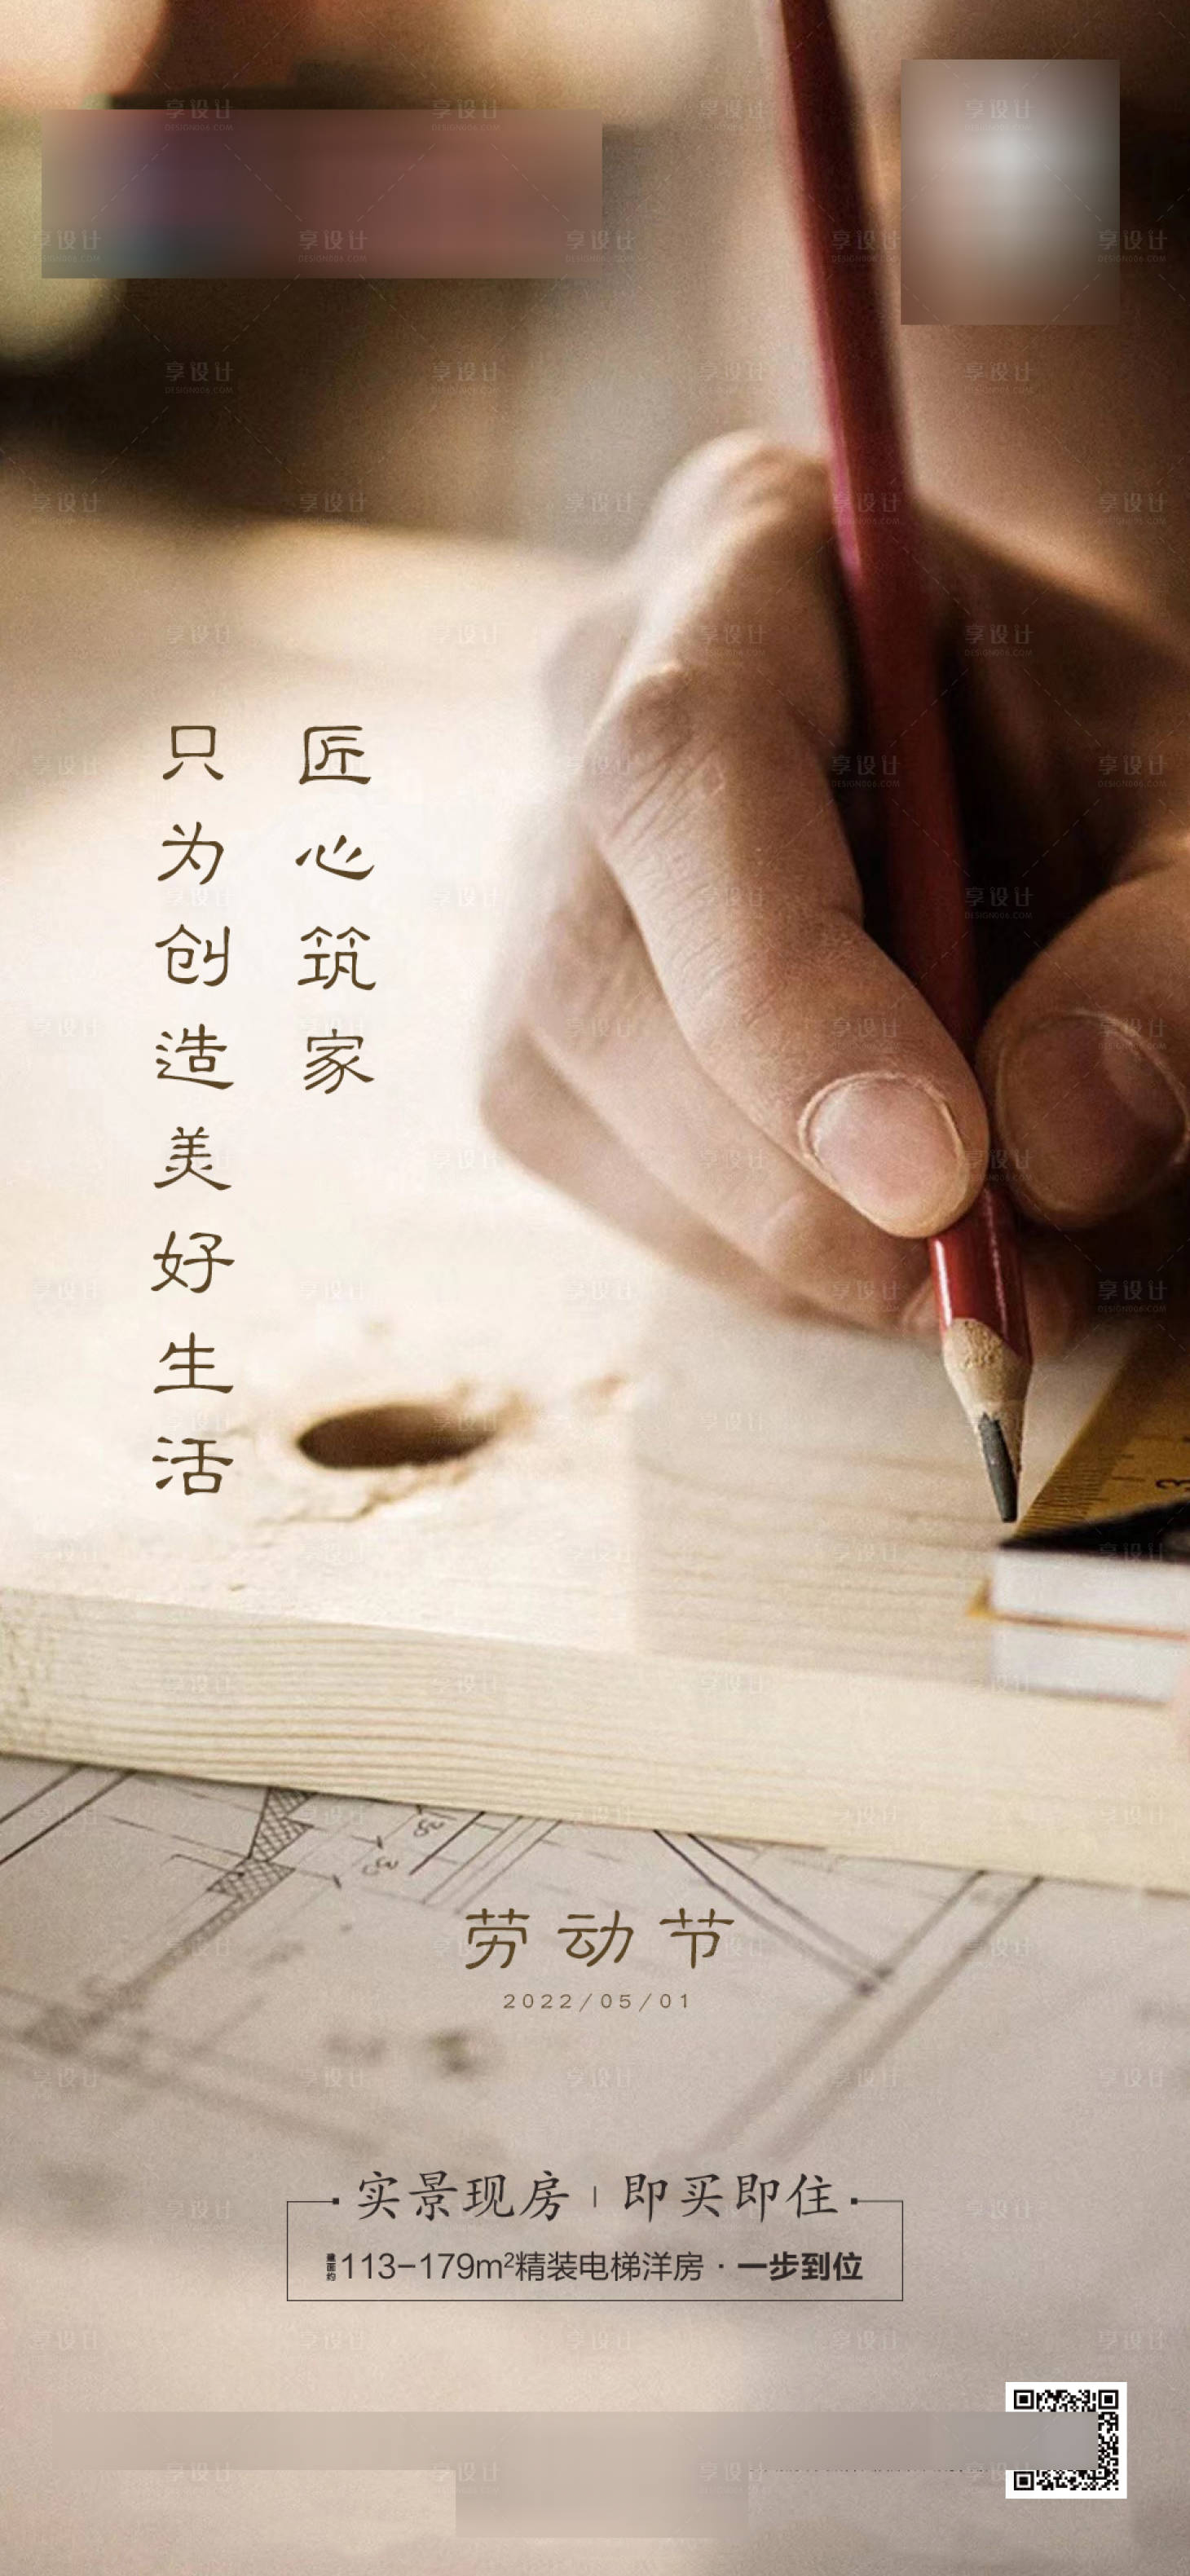 匠心筑家
只为创造美好生活
劳动节
2022/05/01
实景现房 | 即买即住
建面约113-179m²精装电梯洋房·一步到位
享设计
DESIGN006.COM